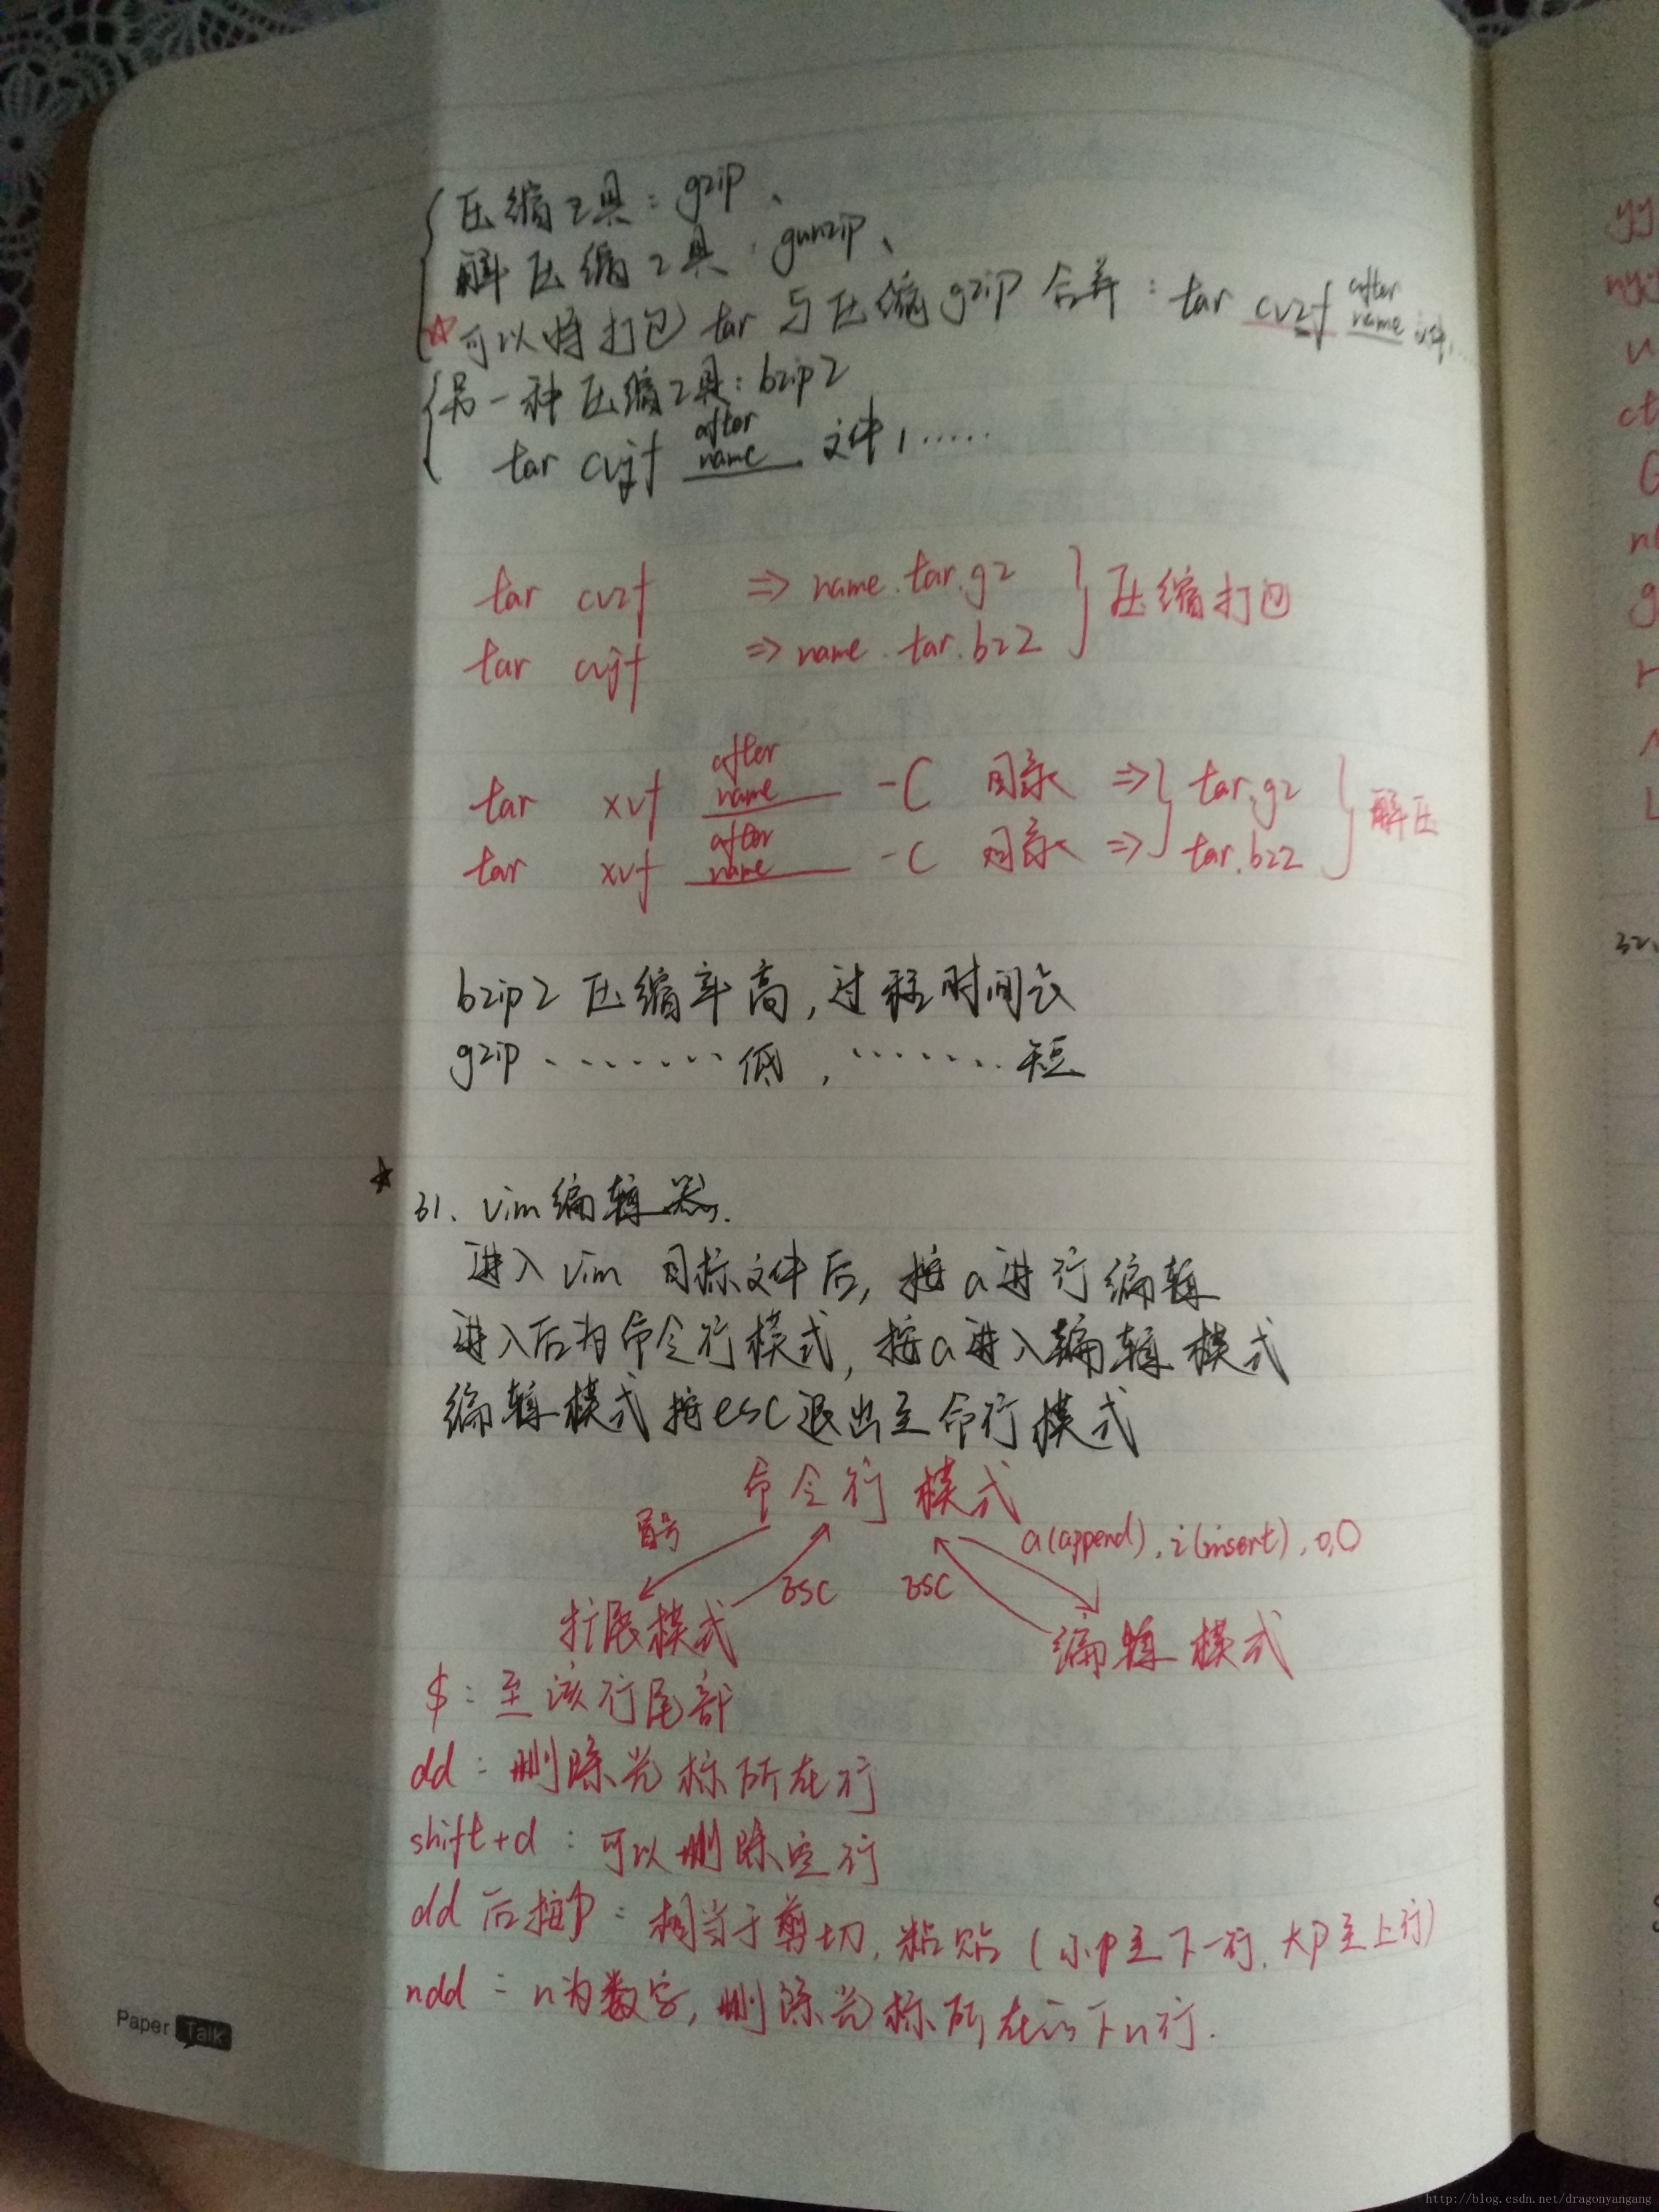 压缩工具：gzip、
解压缩工具：gunzip、
☆可以将打包tar与压缩gzip合并：tar cvzf after name 文件,...
另一种压缩工具：bzip2
tar cvjf after name 文件,……
tar cvzf => name.tar.gz } 压缩打包
tar cvjf => name.tar.bz2
tar xvf after name -C 目录 => tar.gz } 解压
tar xvf after name -C 目录 => tar.bz2
bzip2 压缩率高,过程时间长
gzip ········低,········短
☆
31、vim编辑器.
进入vim 目标文件后,按a进行编辑
进入后为命令行模式,按a进入编辑模式
编辑模式按esc退出至命行模式
命令行模式
冒号
a(append),i(insert),o,O
ESC ESC
扩展模式
编辑模式
$：至该行尾部
dd：删除光标所在行
shift+d：可以删除空行
dd后按p：相当于剪切,粘贴(小p至下一行,大P至上行)
ndd：n为数字,删除光标所在行下n行.
Paper Talk
yy
ct
G
g
r
L
32、
http://blog.csdn.net/dragonyangang